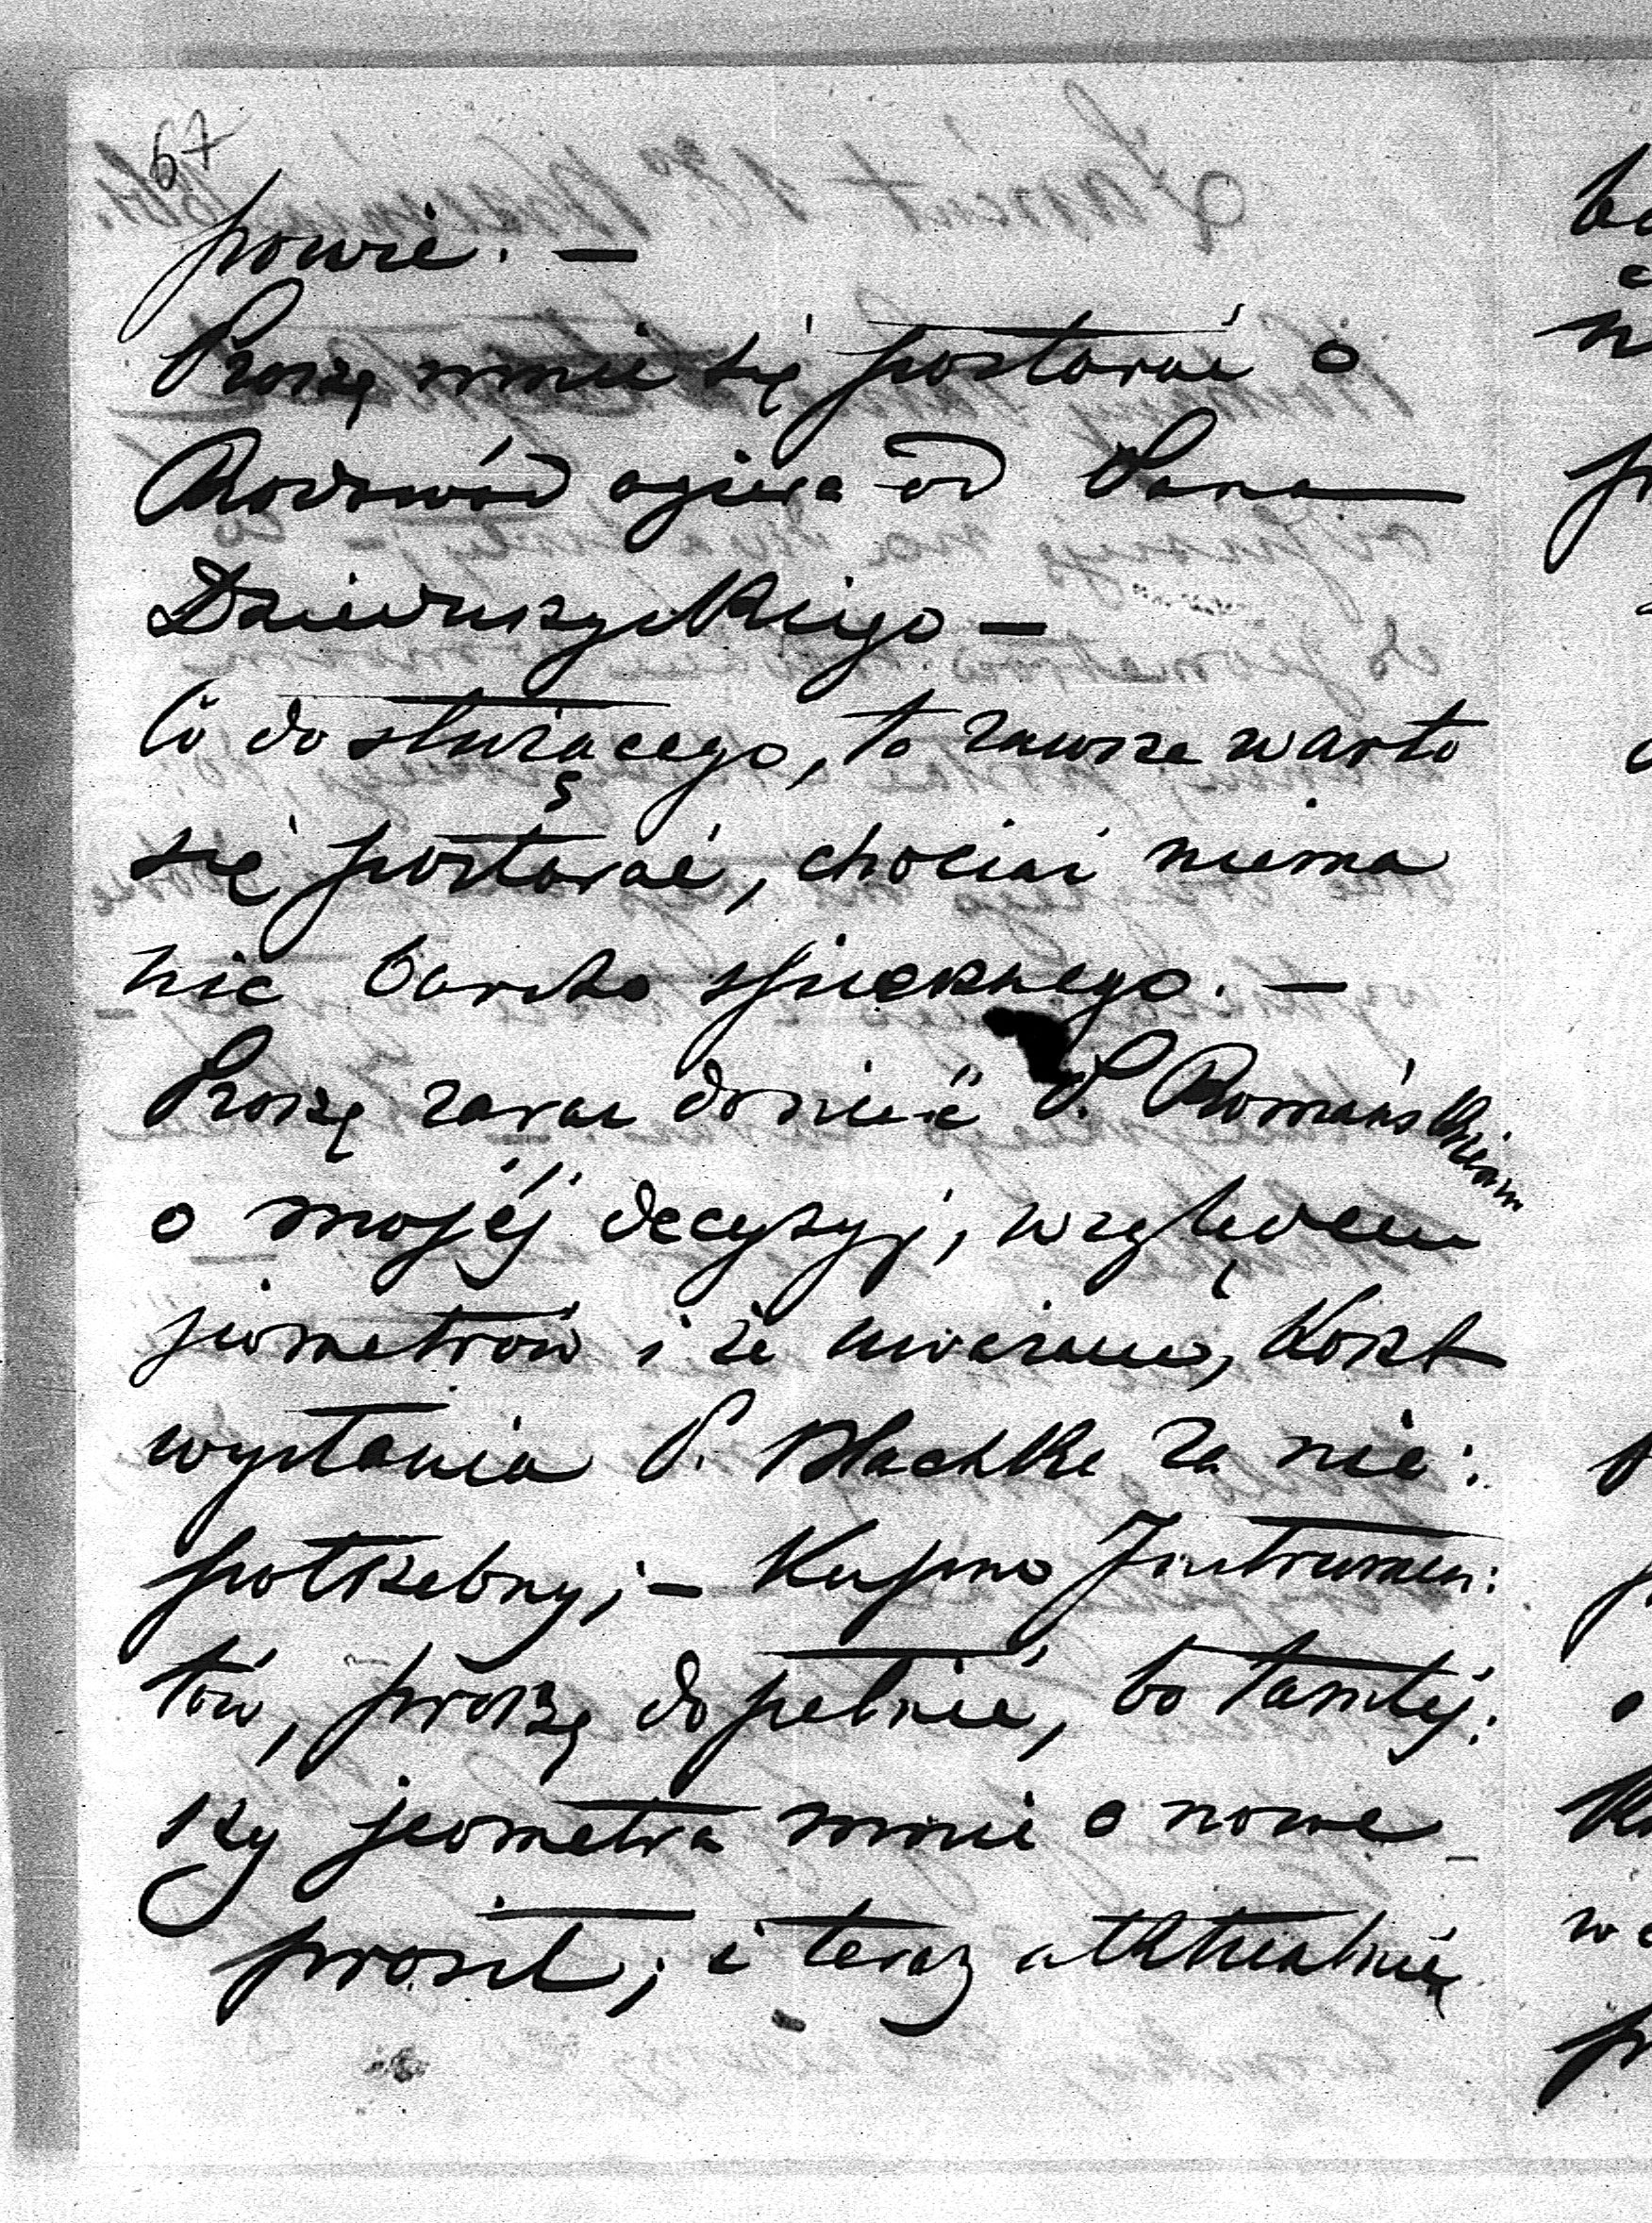 67
powie. —
Proszę mnie się postarać o
Rodowód ogiera od Pana
Dzieduszyckiego —
Co do służącego, to zawsze warto
się postarać, chociaż niema
nic bardzo spiesznego. —
Proszę zaraz donieść P. Romańskiem
o mojéj decyzyj, względem
jeometrów i że uważam, koszt
wysłania P. Blachke za nie:
potrzebny; — Kupno Instrumen:
tów, proszę dopełnić, bo tamtéj:
szy jeometra mnie o nowe
prosił; i teraz aktualnie